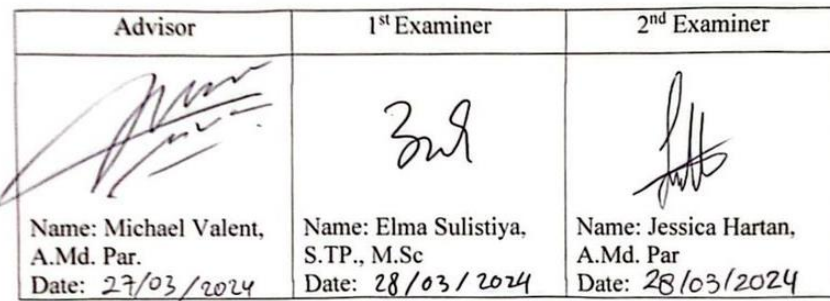 Advisor
1st Examiner
2nd Examiner
Name: Michael Valent,
A.Md. Par.
Date: 27/03/2024
Name: Elma Sulistiya,
S.TP., M.Sc
Date: 28/03/2024
Name: Jessica Hartan,
A.Md. Par
Date: 28/03/2024